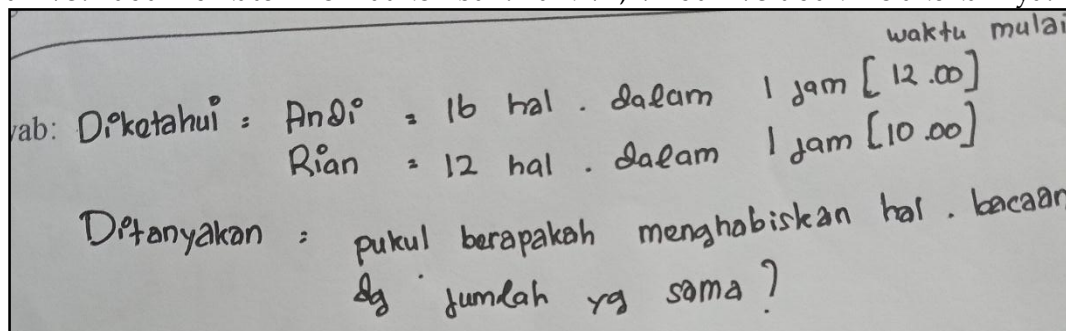 waktu mulai
ab: Diketahui : Andi = 16 hal . dalam 1 jam [12.00]
Rian = 12 hal . dalam 1 jam [10.00]
Ditanyakan : pukul berapakah menghabiskan hal . bacaan
dg jumlah yg sama ?